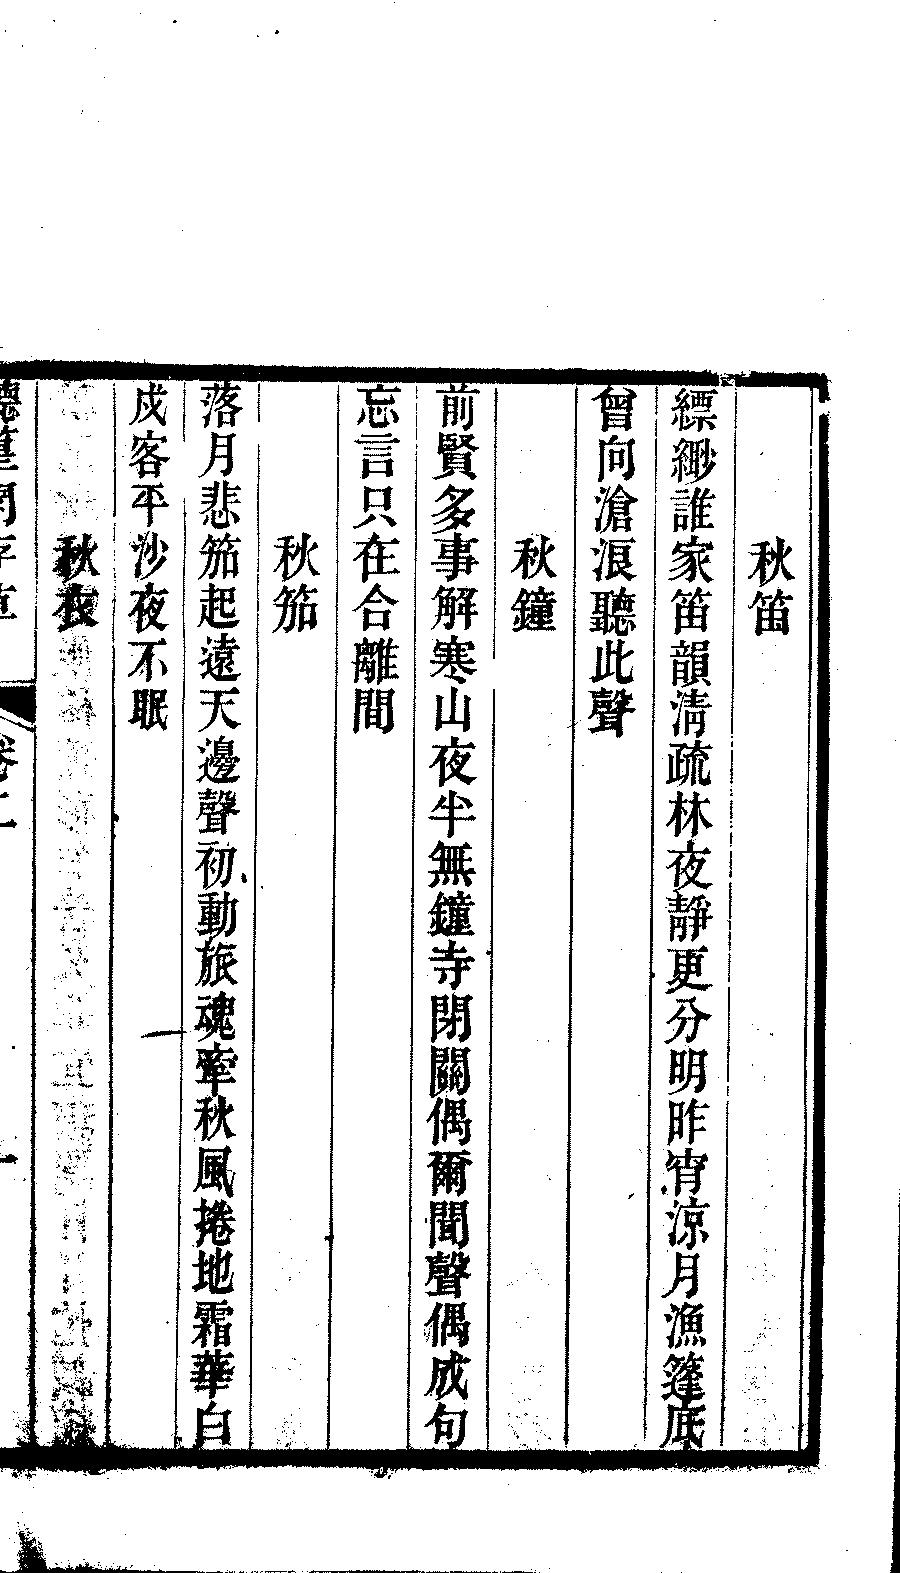 秋笛
縹緲誰家笛韻清疏林夜靜更分明昨宵涼月漁篷底
曾向滄浪聽此聲
秋鐘
前賢多事解寒山夜半無鐘寺閉關偶爾聞聲偶成句
忘言只在合離間
秋笳
落月悲笳起遠天邊聲初動旅魂牽秋風捲地霜華白
戍客平沙夜不眠
秋衣
卷二